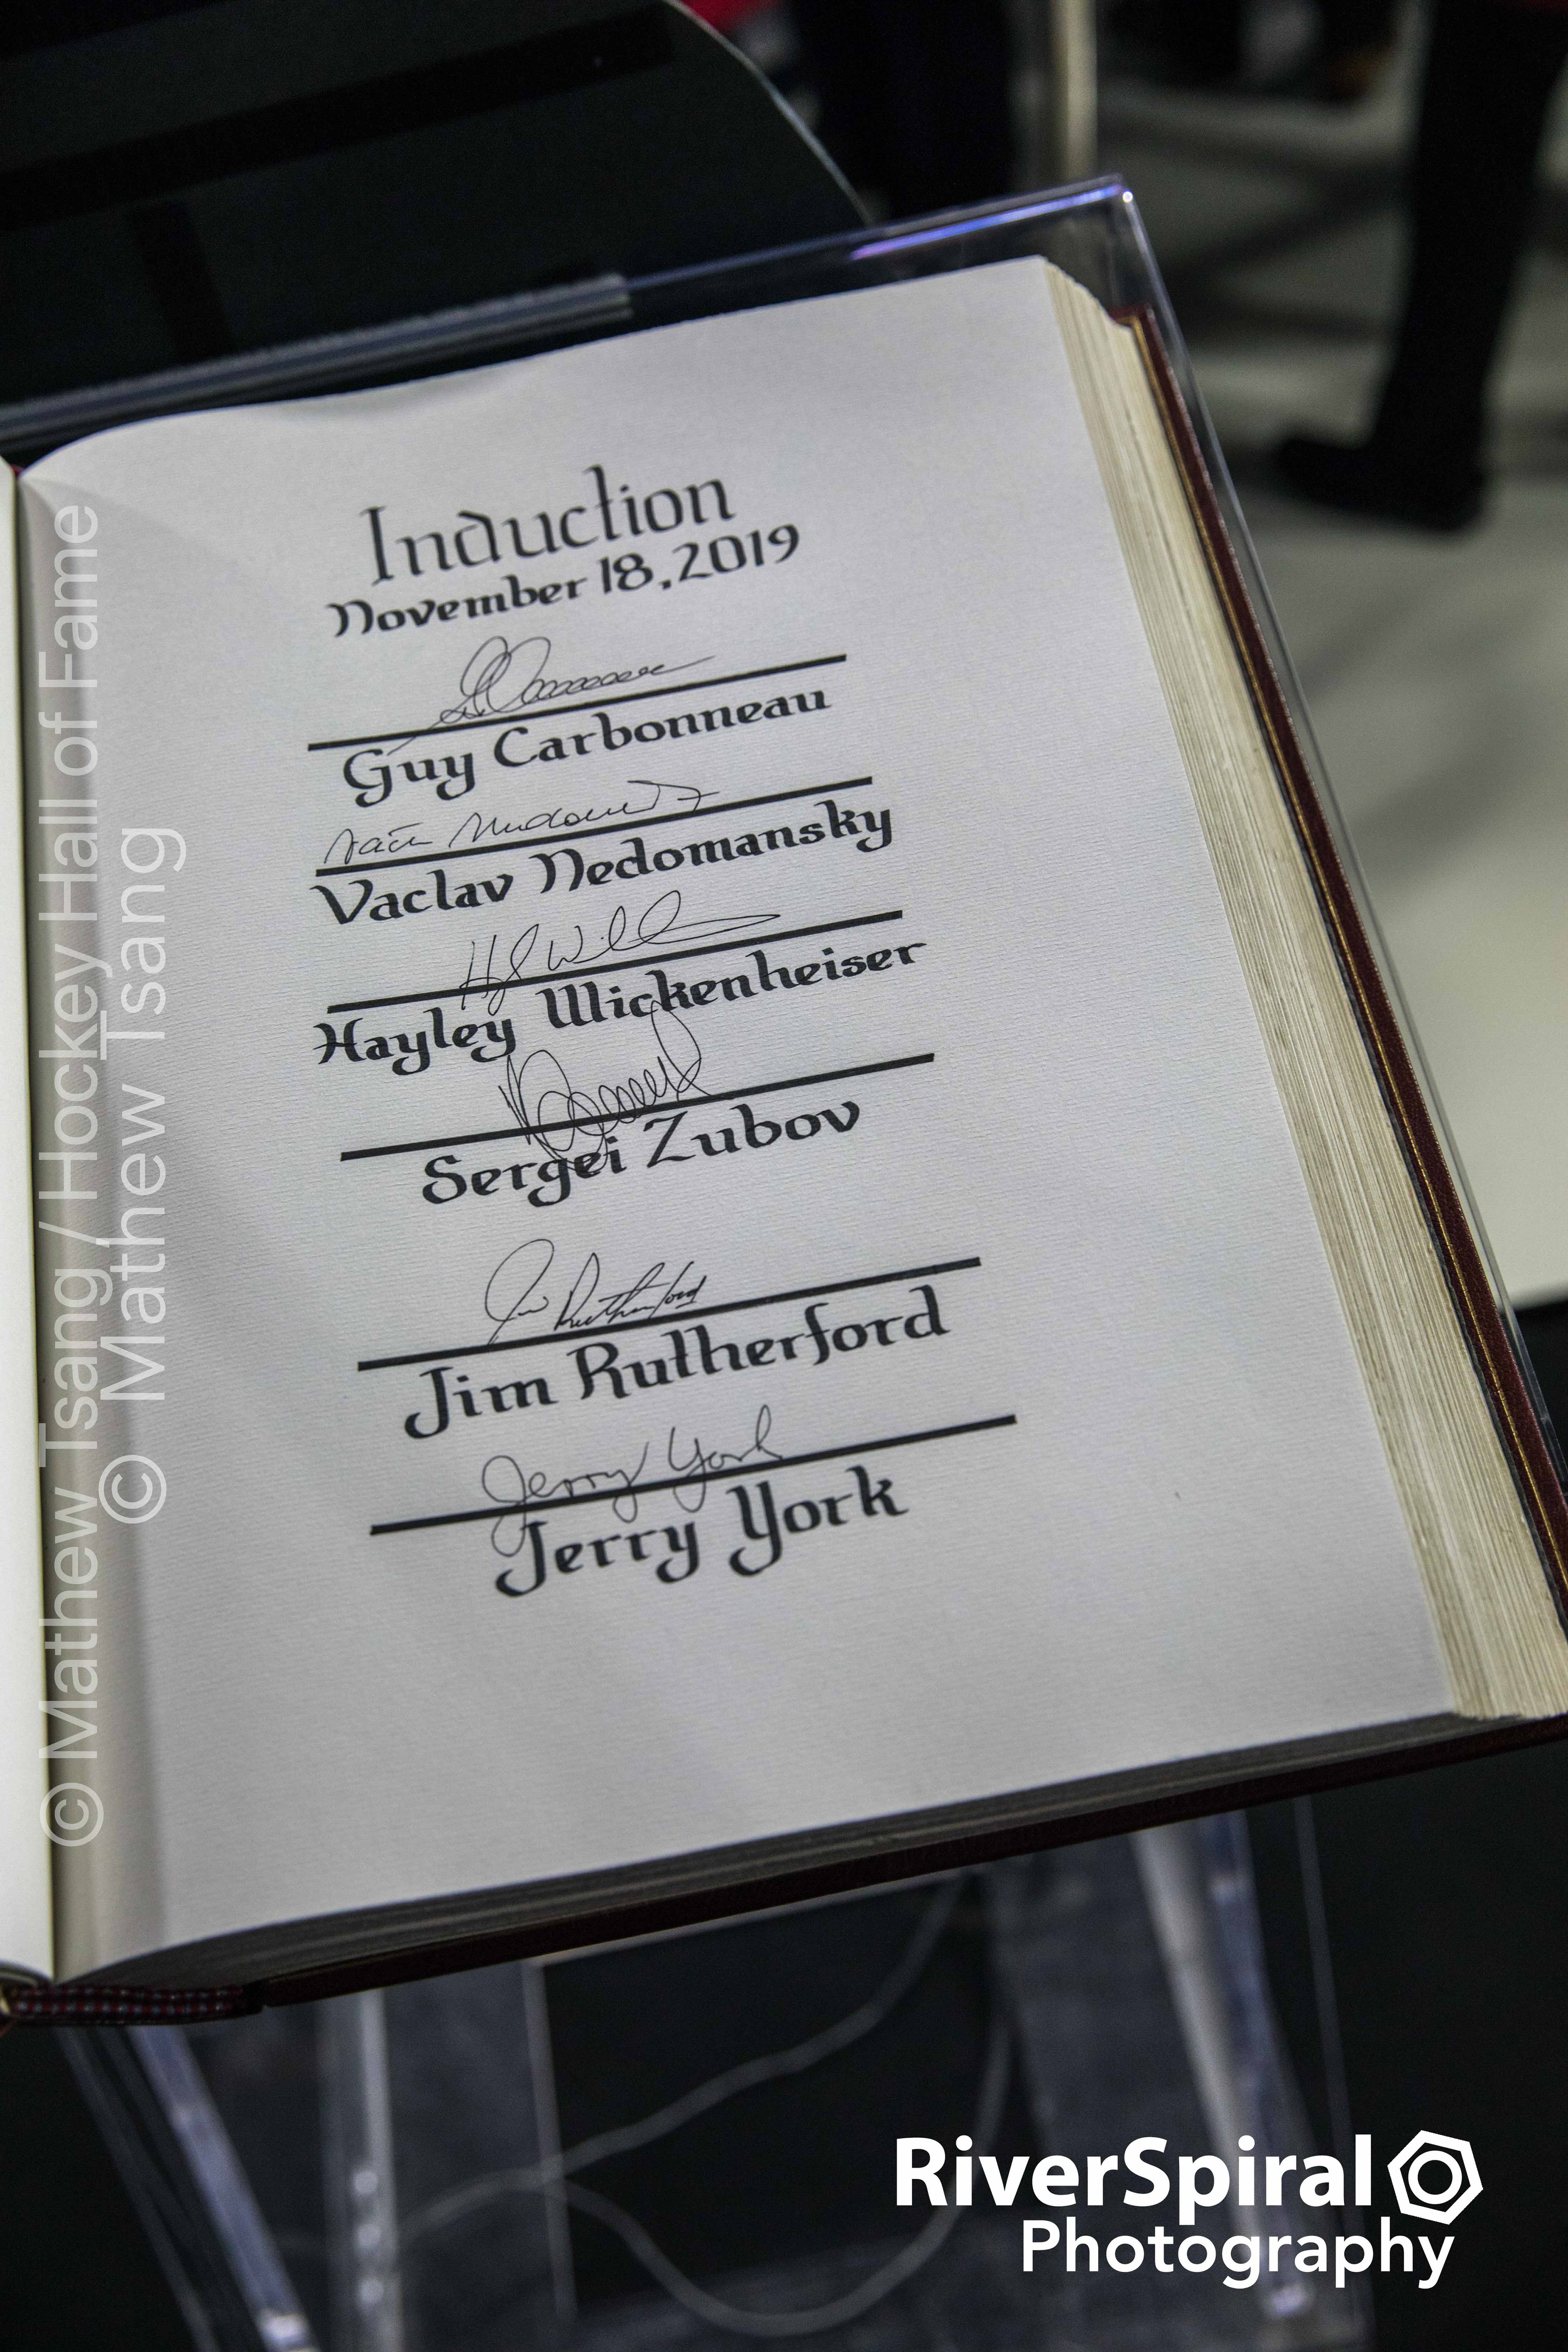 Induction
November 18, 2019
Guy Carbonneau
Vaclav Nedomansky
Hayley Wickenheiser
Sergei Zubov
Jim Rutherford
Jim Rutherford
Jerry York
Jerry York
© Mathew Tsang / Hockey Hall of Fame
© Mathew Tsang
RiverSpiral
Photography